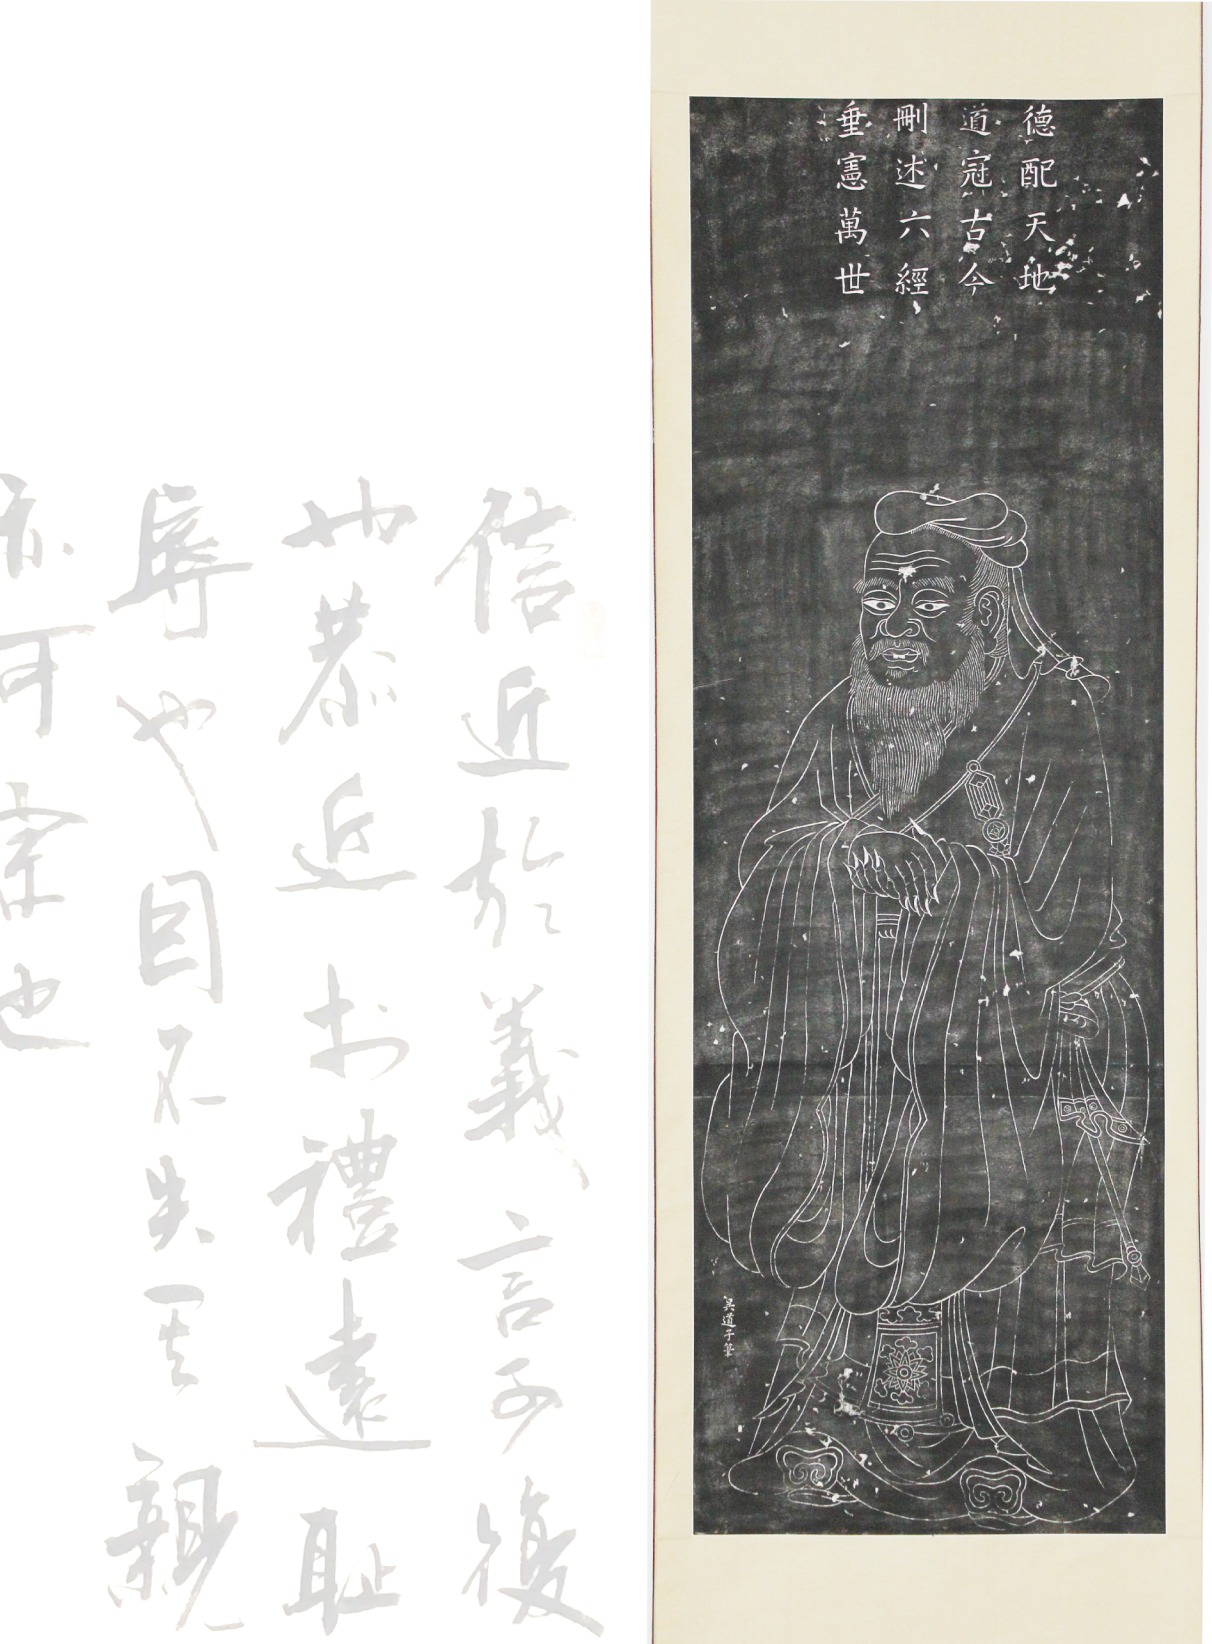 德配天地
道冠古今
刪述六經
垂憲萬世
吳道子筆
信近於義言可復
也恭近於禮遠恥
辱也因不失其親
亦可宗也